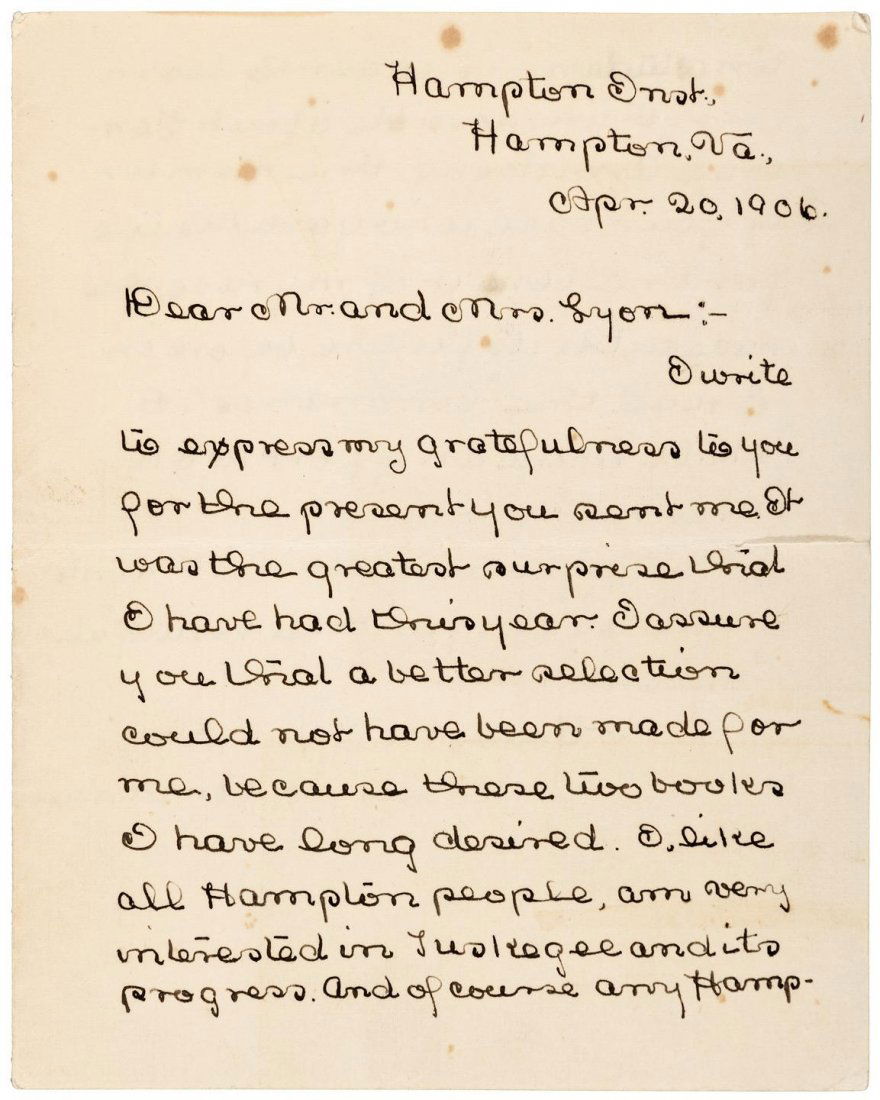 Hampton Inst.,
Hampton, Va.,
Apr. 20, 1906.
Dear Mr. and Mrs. Lyon:-
I write
to express my gratefulness to you
for the present you sent me. It
was the greatest surprise that
I have had this year. I assure
you that a better selection
could not have been made for
me, because these two books
I have long desired. I, like
all Hampton people, am very
interested in Tuskegee and its
progress. And of course any Hamp-